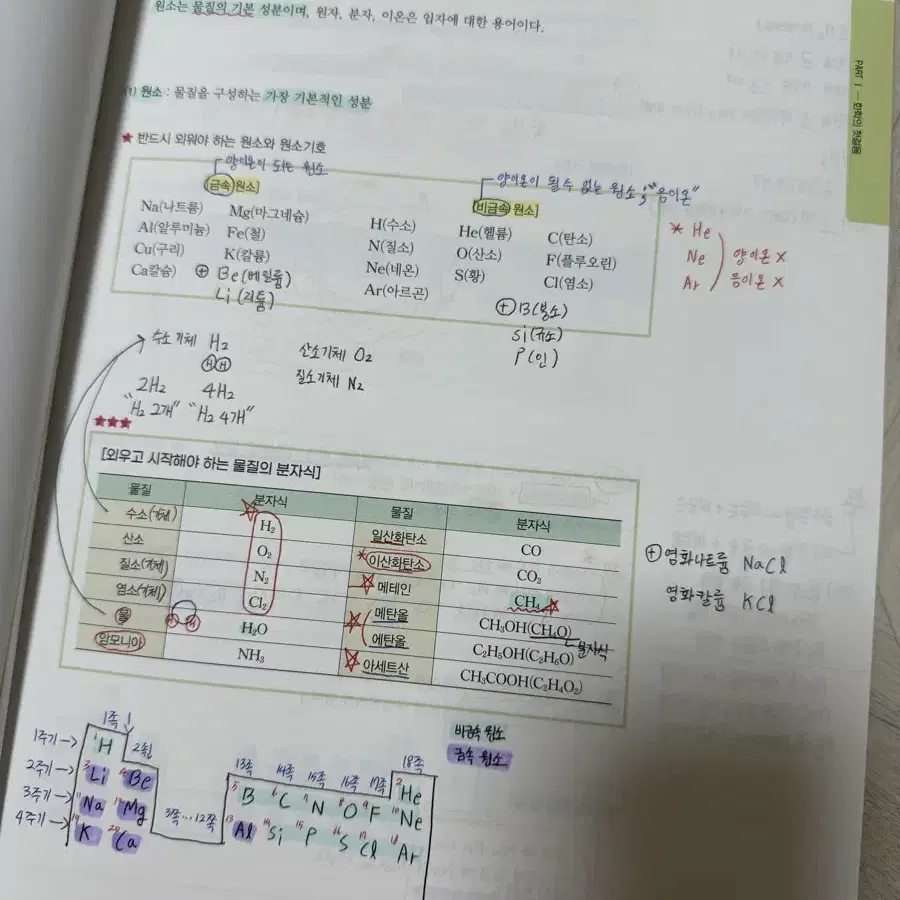 원소는 물질의 기본 성분이며, 원자, 분자, 이온은 입자에 대한 용어이다.
PART Ⅰ — 화학의 첫걸음
(1) 원소 : 물질을 구성하는 가장 기본적인 성분
★ 반드시 외워야 하는 원소와 원소기호
양이온이 되는 원소
[금속 원소]
Na(나트륨) Mg(마그네슘)
Al(알루미늄) Fe(철)
Cu(구리) K(칼륨)
Ca칼슘)
⊕ Be(베릴륨)
Li(리튬)
양이온이 될 수 없는 원소; "음이온"
[비금속 원소]
H(수소) He(헬륨) C(탄소)
N(질소) O(산소) F(플루오린)
Ne(네온) S(황) Cl(염소)
Ar(아르곤)
⊕ B(붕소)
Si(규소)
P(인)
* He
Ne 양이온 X
Ar 음이온 X
수소기체 H₂
H H
2H₂ 4H₂
"H₂ 2개" "H₂ 4개"
산소기체 O₂
질소기체 N₂
★★★
[외우고 시작해야 하는 물질의 분자식]
물질 분자식 물질 분자식
수소(기체) H₂ 일산화탄소 CO
산소 O₂ *이산화탄소 CO₂
질소(기체) N₂ 메테인 CH₄
염소(기체) Cl₂ 메탄올 CH₃OH(CH₄O)
물 H₂O 에탄올 C₂H₅OH(C₂H₆O) 분자식
암모니아 NH₃ 아세트산 CH₃COOH(C₂H₄O₂)
⊕ 염화나트륨 NaCl
염화칼륨 KCl
비금속 원소
금속 원소
1족 18족
1주기→ 1 H 2족 13족 14족 15족 16족 17족 2 He
2주기→ 3 Li 4 Be 5 B 6 C 7 N 8 O 9 F 10 Ne
3주기→ 11 Na 12 Mg 3족...12족 13 Al 14 Si 15 P 16 S 17 Cl 18 Ar
4주기→ 19 K 20 Ca